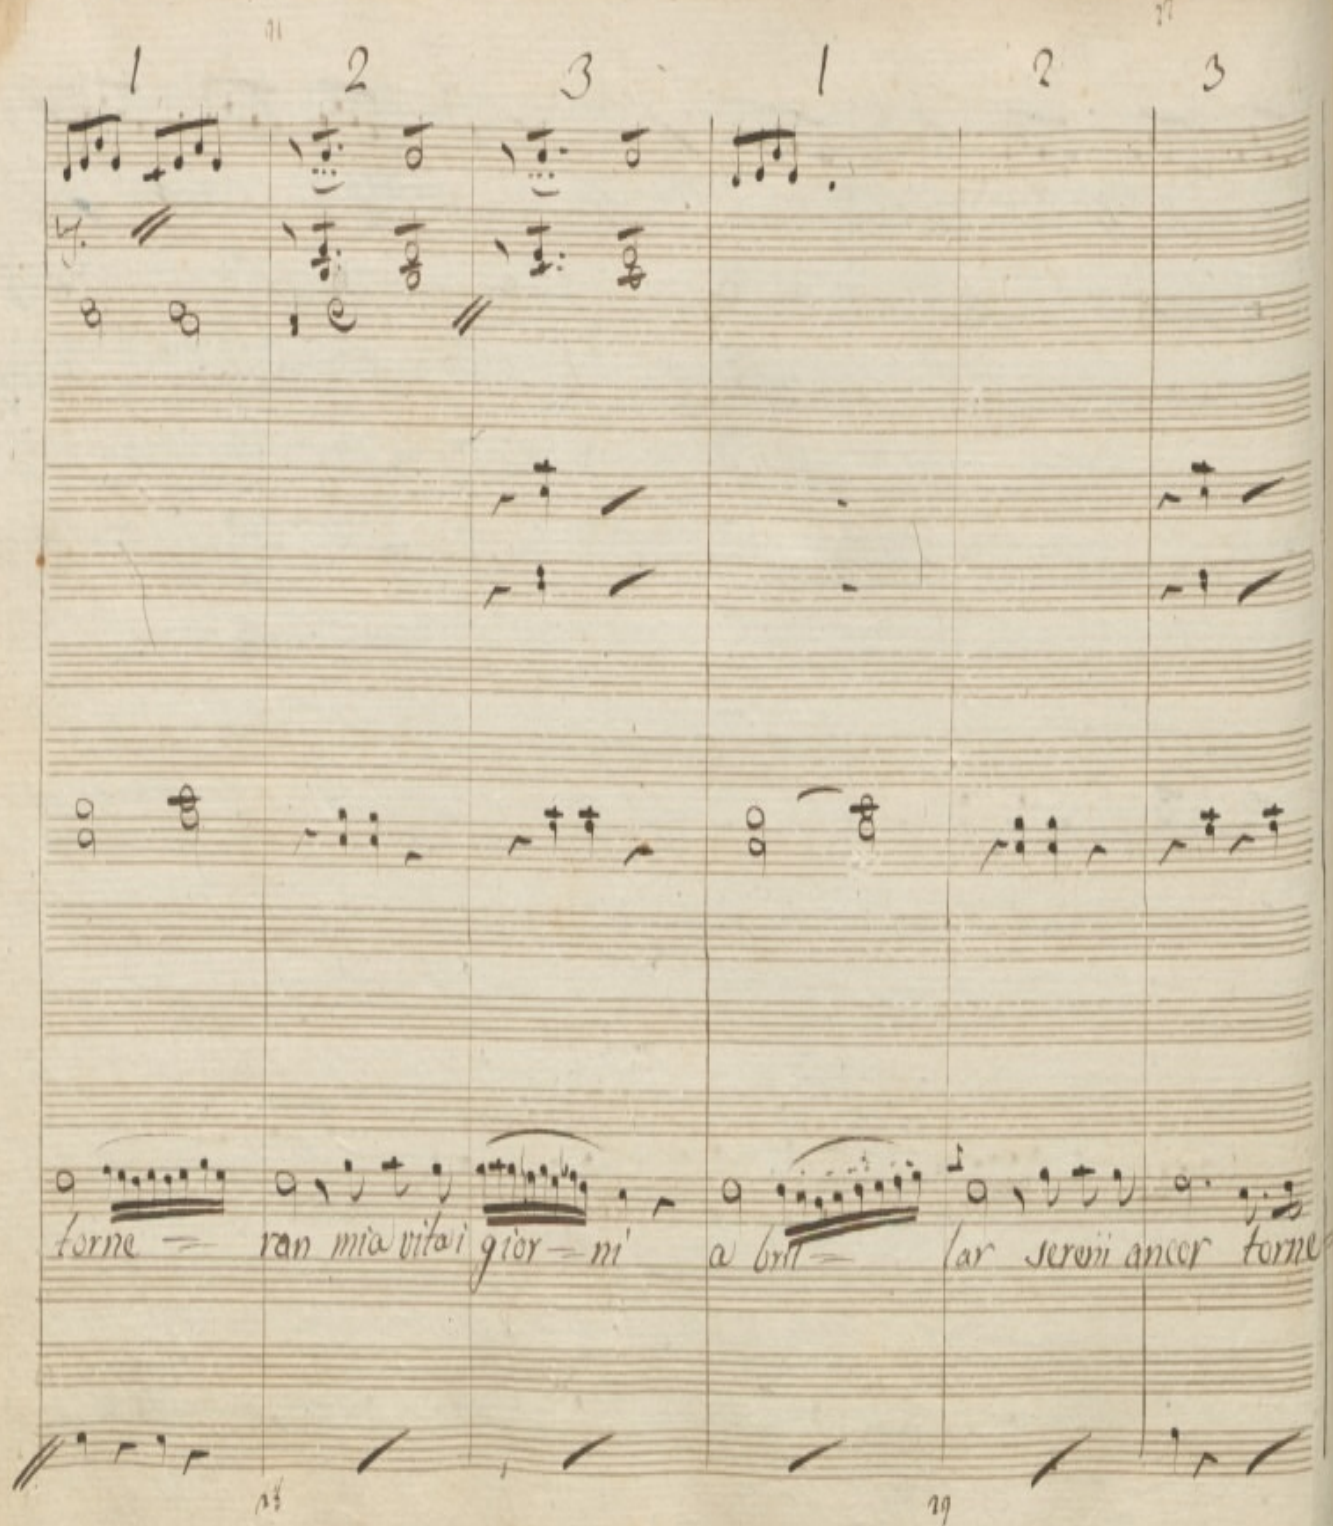 1 2 3 1 2 3
torne = ran mia vita i gior = ni a bril = lar sereni ancor torne
29